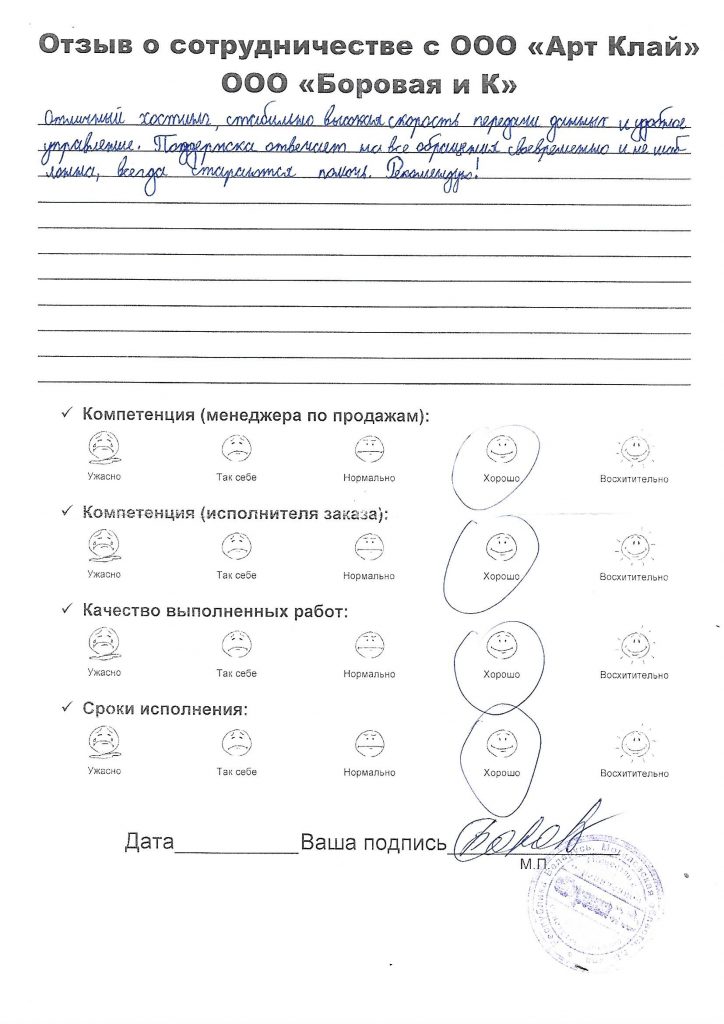 Отзыв о сотрудничестве с ООО «Арт Клай»
ООО «Боровая и К»
Отличный хостинг, стабильно высокая скорость передачи данных и удобное
управление. Поддержка отвечает на все обращения своевременно и не шаб-
лонна, всегда стараются помочь. Рекомендую!
✓ Компетенция (менеджера по продажам):
Ужасно Так себе Нормально Хорошо Восхитительно
✓ Компетенция (исполнителя заказа):
Ужасно Так себе Нормально Хорошо Восхитительно
✓ Качество выполненных работ:
Ужасно Так себе Нормально Хорошо Восхитительно
✓ Сроки исполнения:
Ужасно Так себе Нормально Хорошо Восхитительно
Дата__________Ваша подпись
М.П.
Республика Беларусь